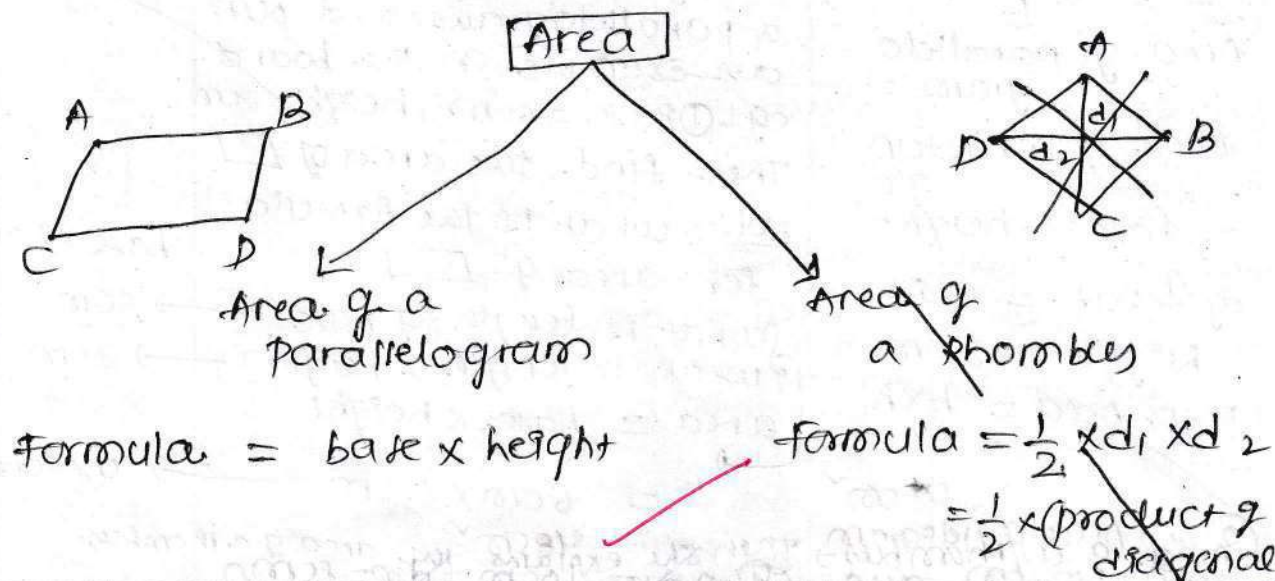 Area
A
B
C
D
A
B
C
D
d1
d2
Area of a
parallelogram
Area of
a rhombus
Formula = base × height
Formula = 1/2 × d1 × d2
= 1/2 × (product of
diagonal